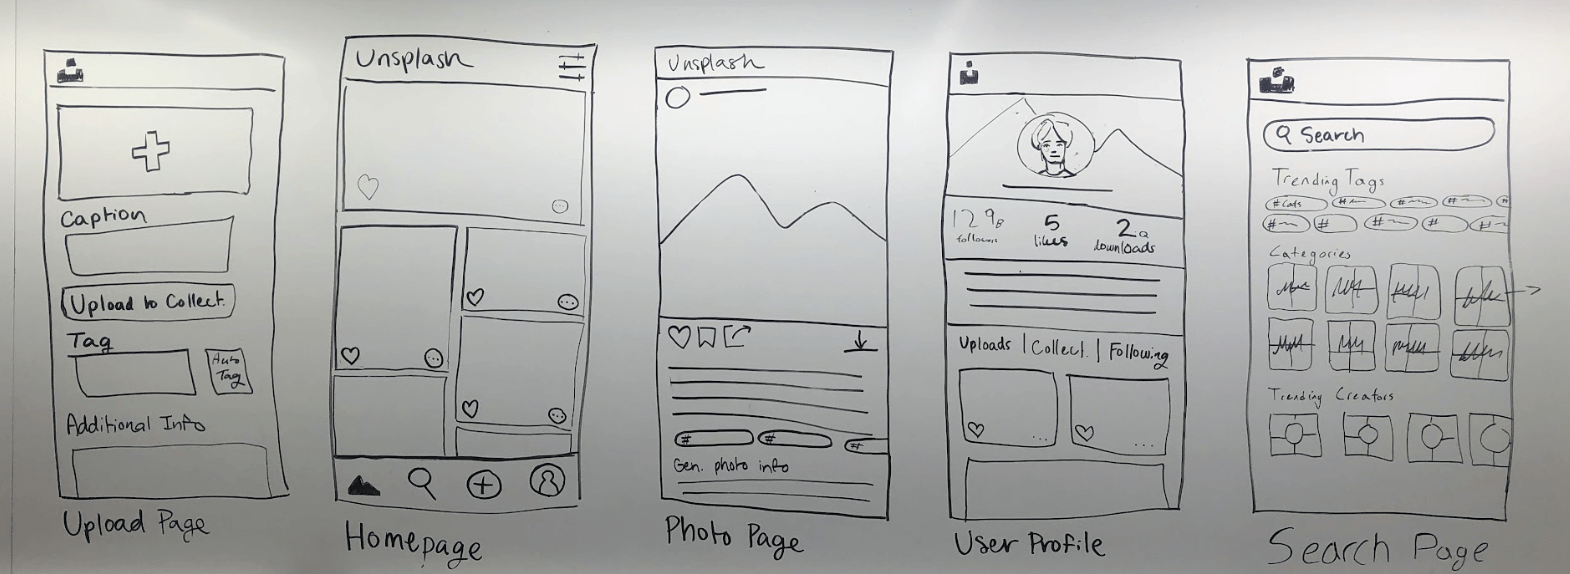 Caption
Upload to Collect.
Tag
Auto
Tag
Additional Info
Upload Page
Unsplash
Homepage
Unsplash
#
#
#
Gen. photo info
Photo Page
5
2
followers
likes
downloads
Uploads | Collect. | Following
User Profile
Search
Trending Tags
#cats # # # #
# # # # #
Categories
Trending Creators
Search Page